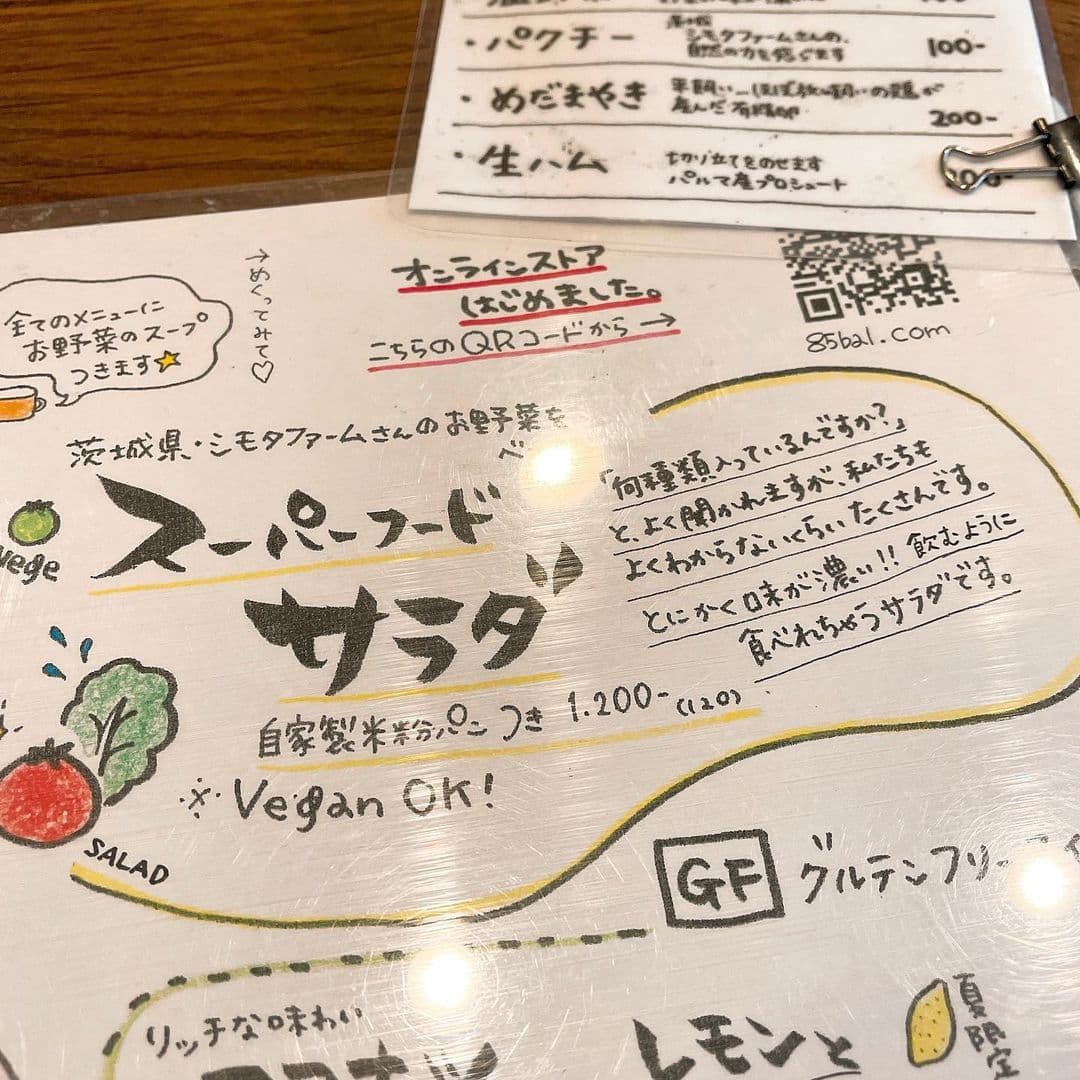 ・パクチー
シモタファームさんの、
自然の力を感じます
100-
・めだまやき
平飼い―ほぼ放し飼いの鶏が
産んだ有精卵
200-
・生ハム
切り立てをのせます
パルマ産プロシュート
→めくってみて♡
オンラインストア
はじめました。
こちらのQRコードから→
85bal.com
全てのメニューに
お野菜のスープ
つきます
茨城県・シモタファームさんのお野菜を
スーパーフード
サラダ
vege
「何種類入っているんですか?」
と、よく聞かれますが、私たちも
よくわからないくらいたくさんです。
とにかく味が濃い!! 飲むように
食べれちゃうサラダです。
自家製米粉パンつき 1.200-(120)
※Vegan OK!
SALAD
GF グルテンフリー
リッチな味わい
レモンと
夏限定